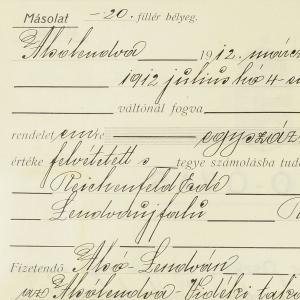 Másolat -20. fillér bélyeg.
Alsólendva 1912. márcz
1912 julius hó 4-en
váltónál fogva
rendelet em re egyszáz
értéke felvétetett s tegye számolásba tud
Reichenfeld Ede
Lendvaujfalu
Fizetendő Alsó-Lendván
az Alsólendva-Vidéki taka